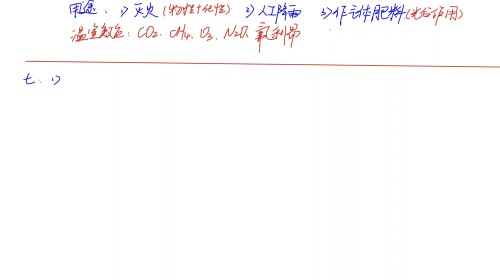 用途: 1) 灭火 (物性+化性) 2) 人工降雨 3) 作气体肥料 (光合作用)
温室效应: CO₂、CH₄、O₃、N₂O、氟利昂
七、1)